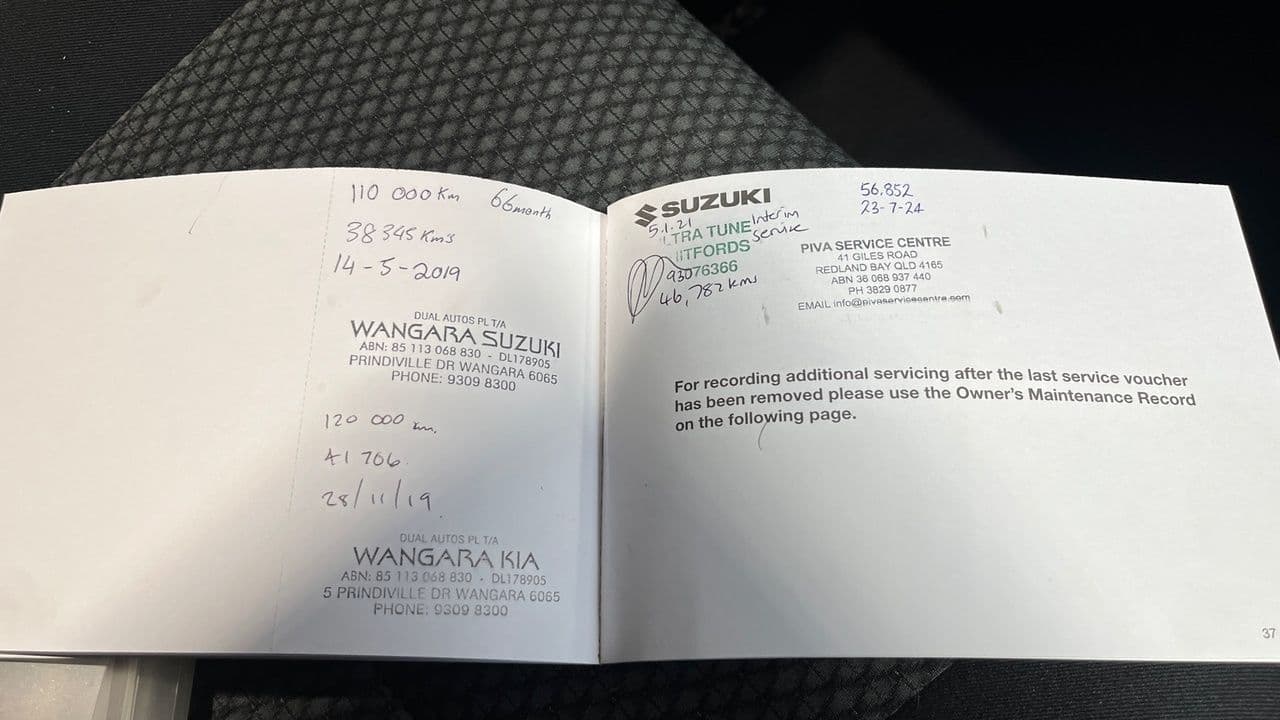 110 000 Km 66month
38 345 Kms
14-5-2019
DUAL AUTOS PL T/A
WANGARA SUZUKI
ABN: 85 113 068 830 - DL178905
PRINDIVILLE DR WANGARA 6065
PHONE: 9309 8300
120 000 km.
41 706.
28/11/19
DUAL AUTOS PL T/A
WANGARA KIA
ABN: 85 113 068 830 - DL178905
5 PRINDIVILLE DR WANGARA 6065
PHONE: 9309 8300
SUZUKI
5.1.21 Interim
LTRA TUNE service
ITFORDS
93076366
46,782 kms
56.852
23-7-24
PIVA SERVICE CENTRE
41 GILES ROAD
REDLAND BAY QLD 4165
ABN 36 068 937 440
PH 3829 0877
EMAIL info@pivaservicecentre.com
For recording additional servicing after the last service voucher
has been removed please use the Owner's Maintenance Record
on the following page.
37